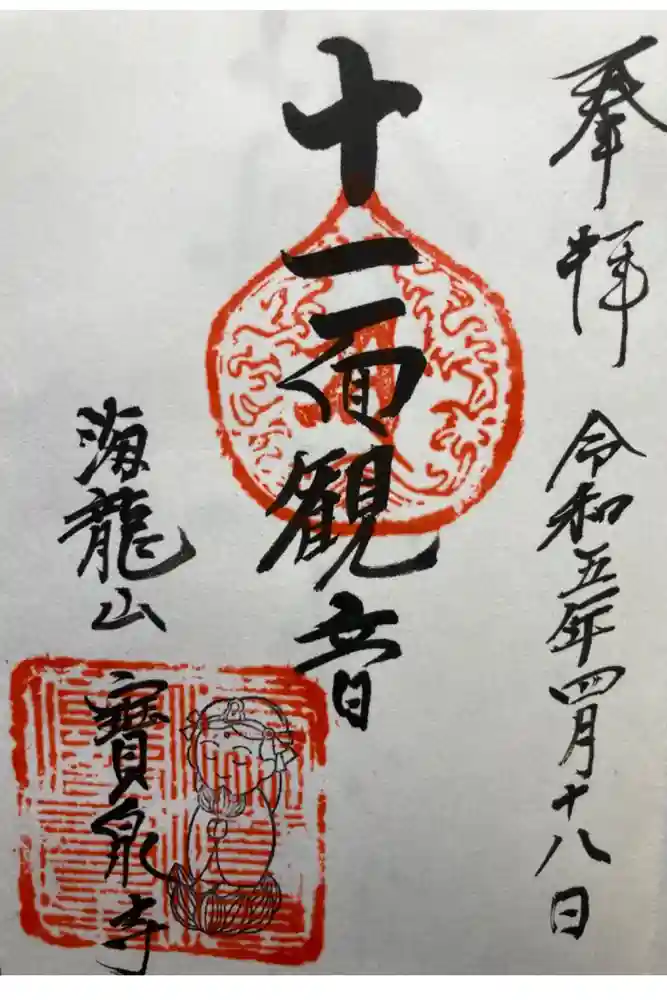 奉拝
令和五年四月十八日
十一面観音
海龍山
寳泉寺